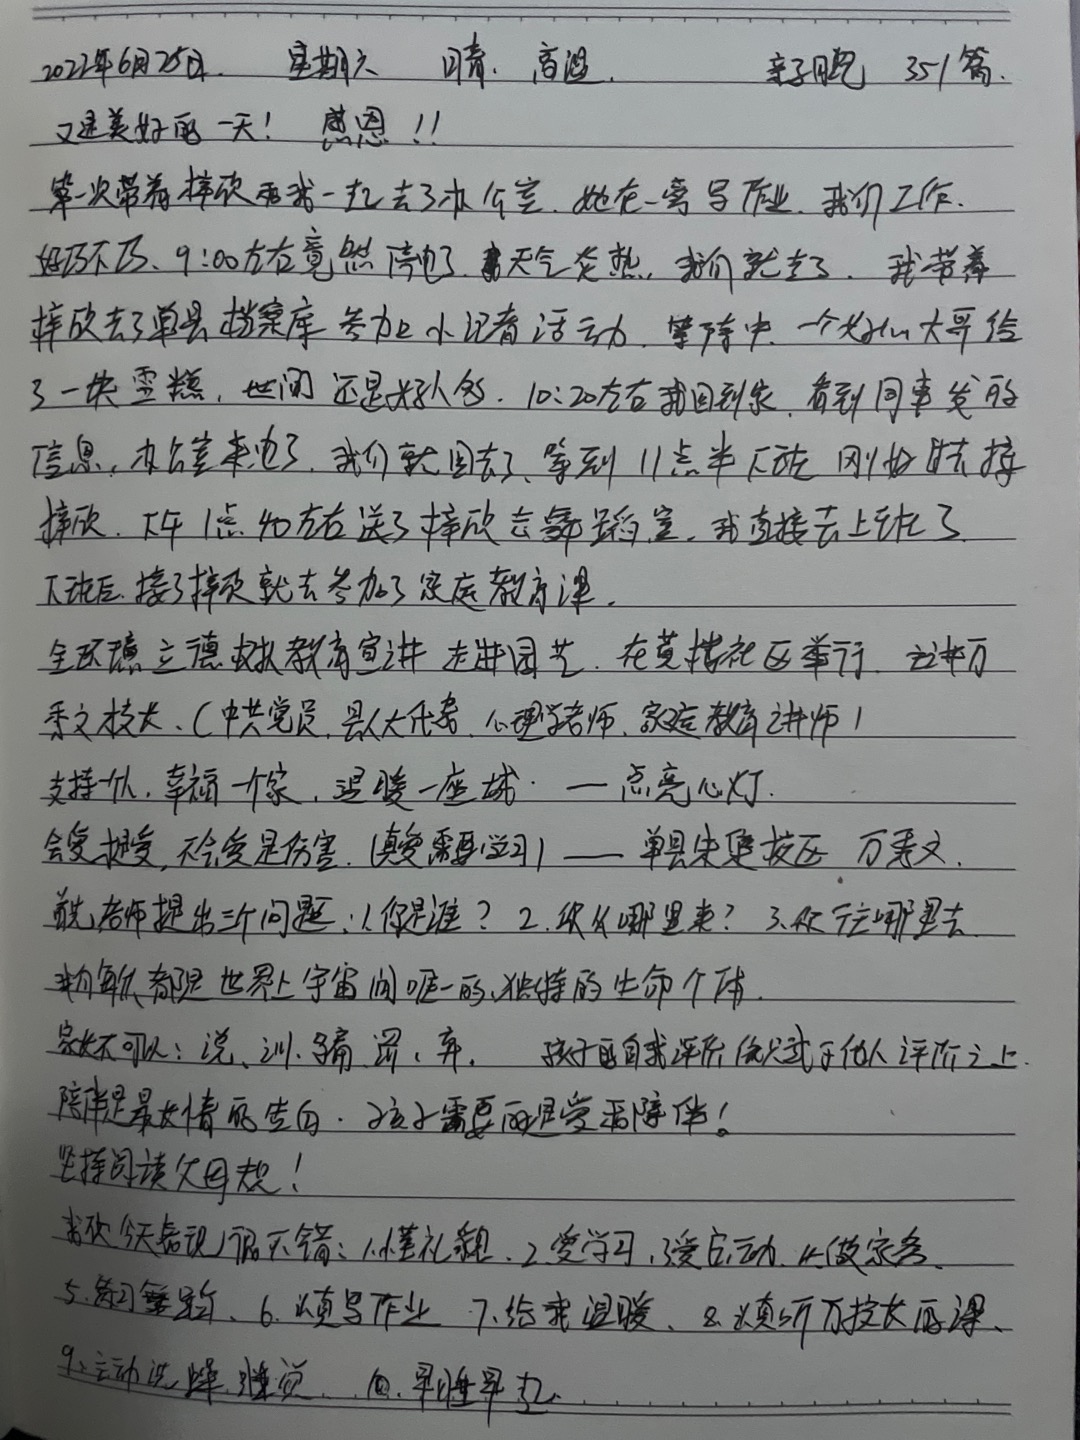 2022年6月25日. 星期六 晴. 高温. 亲子跑 351篇.
又是美好的一天! 感恩!!
第一次带着梓欣和我一起去了办公室. 她在一旁写作业. 我们工作.
好巧不巧、9:00左右竟然停电了 天气炎热, 我们就走了. 我带着
梓欣去了单县档案库参加上小记者活动. 等待中. 一个好心大哥给
了一块雪糕, 世间还是好人多. 10:20左右我回到家, 看到同事发的
信息, 办公室来电了, 我们就回去了, 等到11点半下班刚好去接
梓欣. 下午1点40左右送了梓欣去舞蹈室. 我直接去上班了
下班后. 接了梓欣就去参加了家庭教育课.
全环境立德树人教育宣讲 走进园艺. 在 社区举行. 主讲万
秀文校长、(中共党员, 县人大代表, 心理学老师, 家庭教育讲师)
支持一个人. 幸福一个家, 温暖一座城. — 点亮心灯.
会爱是爱, 不会爱是伤害. (真爱需要学习) —— 单县 校区 万秀文.
首先老师提出三个问题: 1.你是谁? 2.你从哪里来? 3.你往哪里去
我们每个人都是世界上宇宙间唯一的、独特的生命个体.
家长不可以: 说、训、 、骂、弃. 孩子的自我评价 于他人评价之上.
陪伴是最长情的告白. 孩子需要的是爱和陪伴!
坚持阅读父母规!
我欣今天表现很不错: 1.懂礼貌. 2.爱学习, 3.爱运动. 4.做家务.
5.练习 、6.认真写作业 7.给我温暖、8.认真听万校长的课、
9.运动洗澡、睡觉、10.早睡早起.